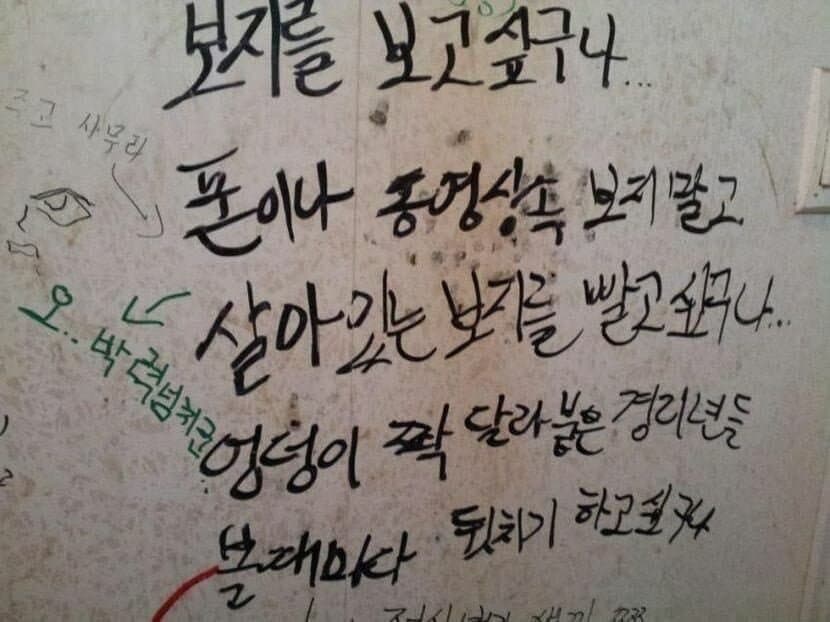 보지를 보고싶구나...
폰이나 동영상속 보지말고
살아있는 보지를 빨고싶구나...
엉덩이 짝 달라붙은 경리년들
볼때마다 뒷치기 하고싶구나
오.. 박력넘치군